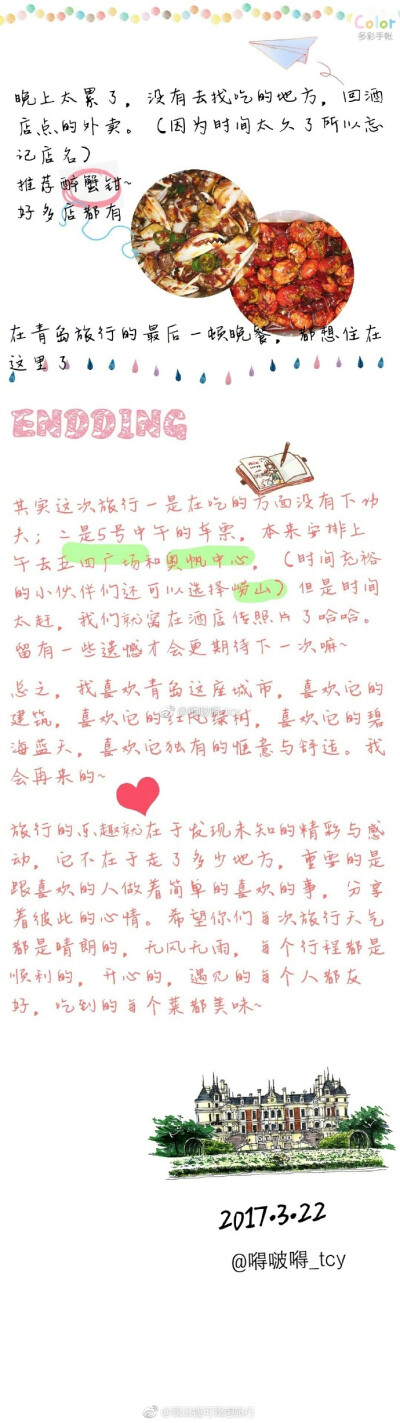 Color
多彩手帐
晚上太累了，没有去找吃的地方，回酒
店点的外卖。（因为时间太久了所以忘
记店名）
推荐醉蟹钳~
好多店都有
在青岛旅行的最后一顿晚餐，都想住在
这里了
ENDDING
其实这次旅行一是在吃的方面没有下功
夫；二是5号中午的车票，本来安排上
午去五四广场和奥帆中心，（时间充裕
的小伙伴们还可以选择崂山）但是时间
太赶，我们就窝在酒店传照片了哈哈。
留有一些遗憾才会更期待下一次嘛~
总之，我喜欢青岛这座城市，喜欢它的
建筑，喜欢它的红瓦绿树，喜欢它的碧
海蓝天，喜欢它独有的惬意与舒适。我
会再来的~
旅行的乐趣就在于发现未知的精彩与感
动，它不在于走了多少地方，重要的是
跟喜欢的人做着简单的喜欢的事，分享
着彼此的心情。希望你们每次旅行天气
都是晴朗的，无风无雨，每个行程都是
顺利的，开心的，遇见的每个人都友
好，吃到的每个菜都美味~
2017.3.22
@嘚啵嘚_tcy